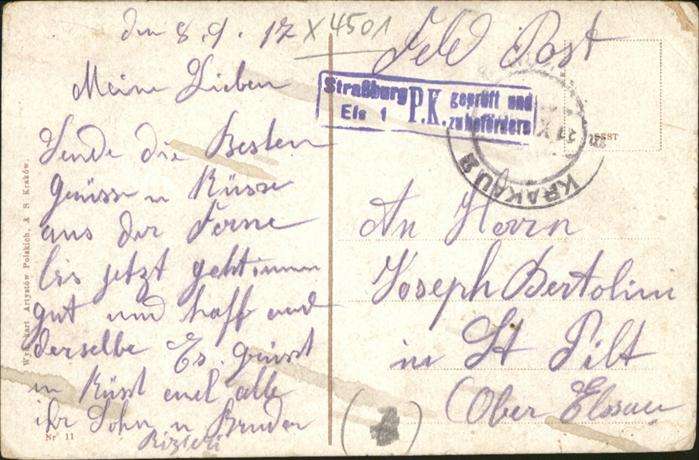 den 8.9.17 X4501
Meine Lieben
Sende die Besten
grüsse u Küsse
aus der Ferne
bis jetzt geht immer
gut und hoff auch
derselbe Es grüsst
u Küsst euch alle
ihr Sohn u Bruder
Feld Post
Straßburg P.K. geprüft und
Els 1 zu befördern
KRAKAU
An Herrn
Joseph Bertolini
in St Pilt
Ober Elsass
(4)
Nr 11
Kart Artystów Polskich, Kraków.